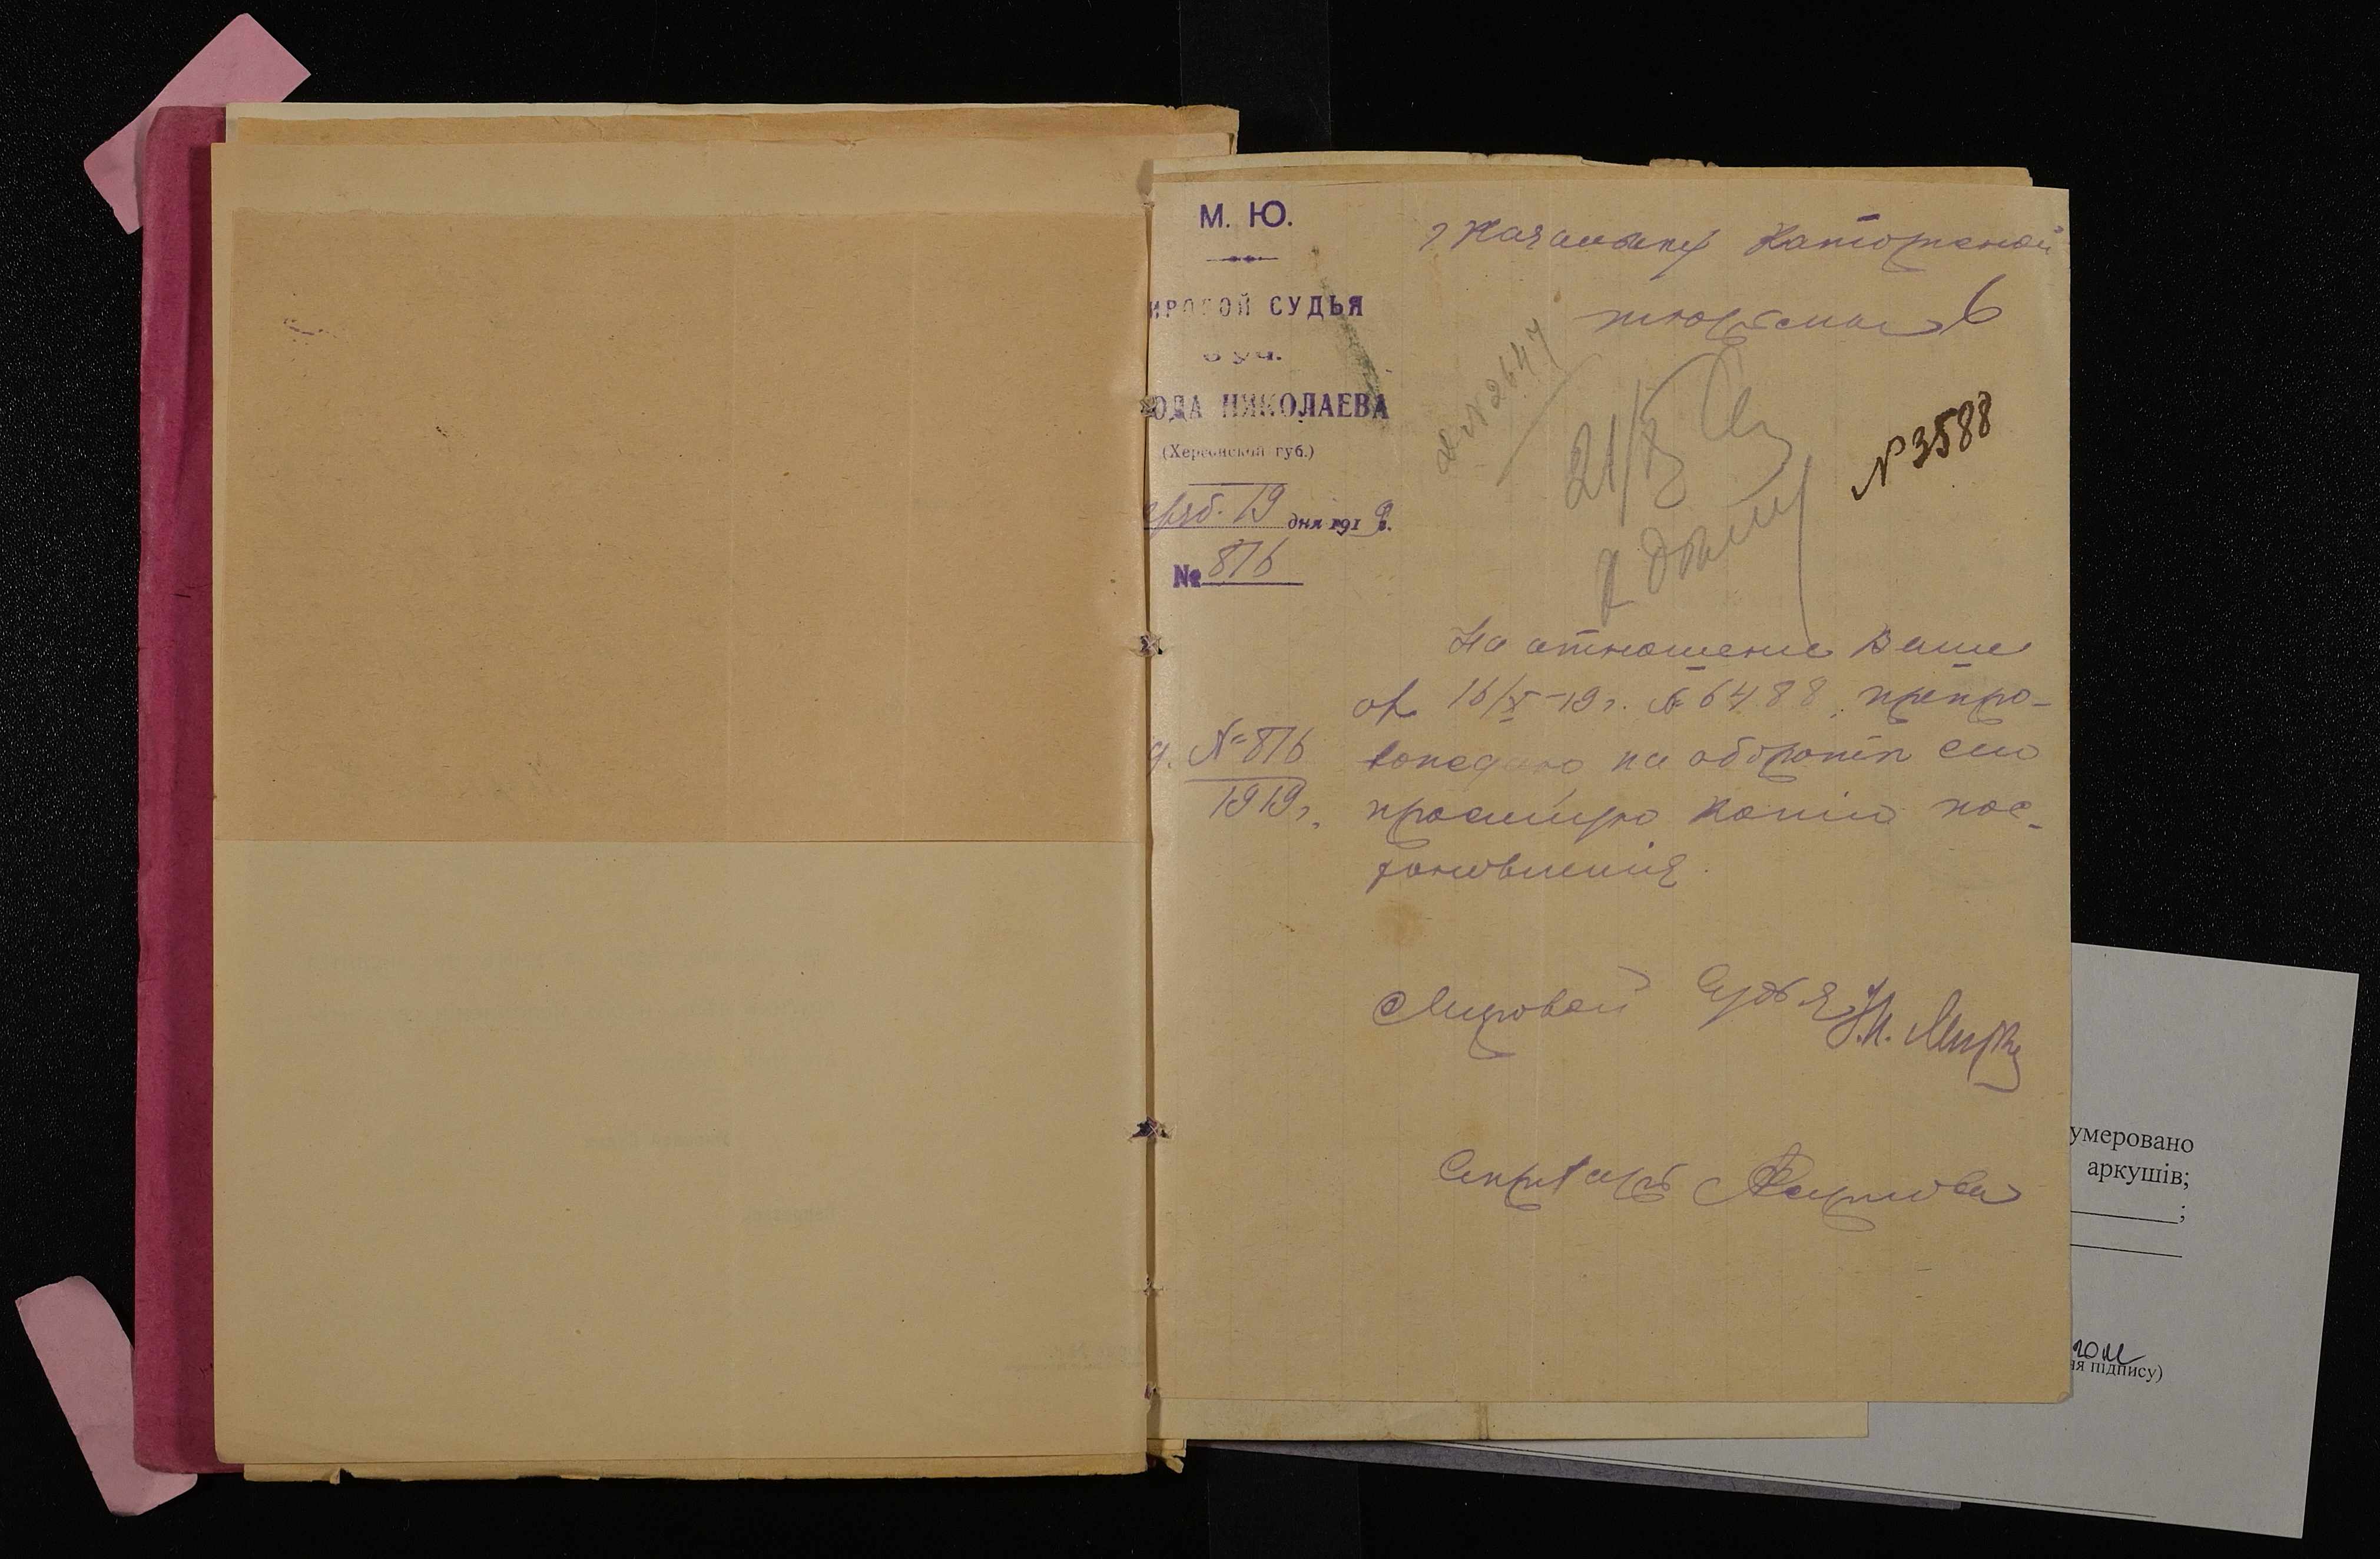 М. Ю.
ИРОВОЙ СУДЬЯ
6 уч.
ОДА НИКОЛАЕВА
(Херсонской губ.)
19 дня 1919 г.
№ 816
г Начальнику Каторжной
тюрьмы
6
№ 2647
21/X
К делу
№ 3588
На отношение Ваше
от 16/X-19 г. № 6488, препро-
вождаю на оборотѣ сего
просимую копію пос-
тановленія.
д. № 816
1919 г.
Мировой Судья
Секретарь
умеровано
аркушів;
;
ня підпису)